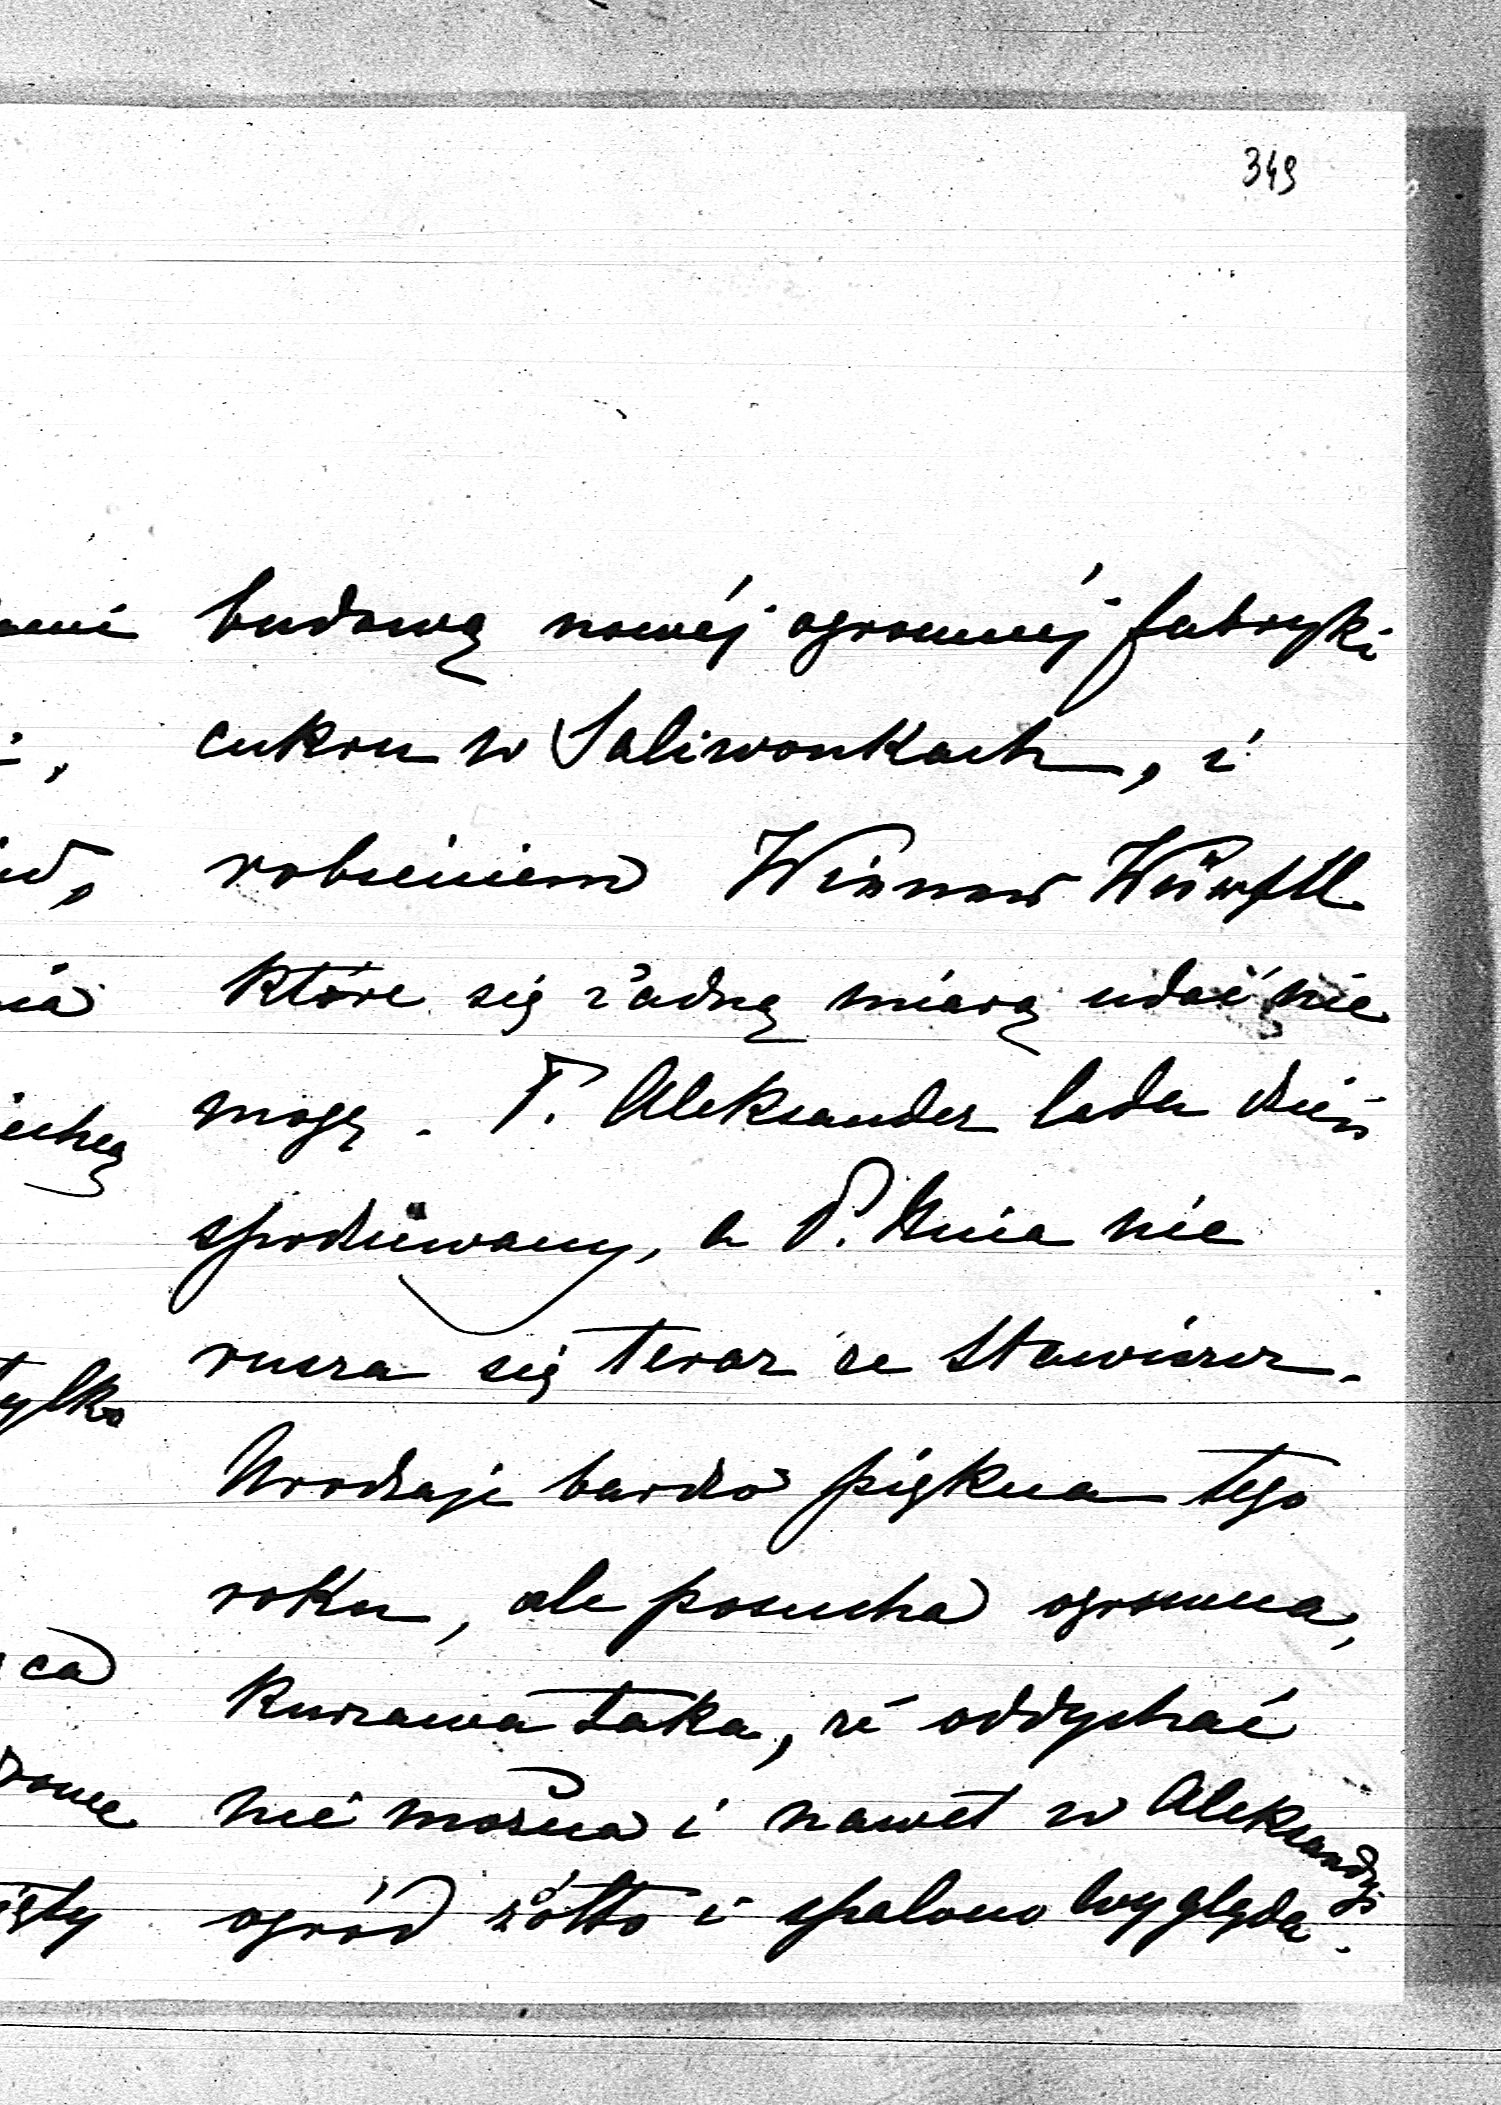 349
budową nowéj ogromnéj fabryki
cukru w Saliwonkach, i
robieniem Wiener Würfel
które się żadną miarą udać nie
mogą. P. Aleksander lada dzień
spodziéwany, a P. Unia nie
rusza się teraz ze Stawiszcz.
Urodzaje bardzo piękna tego
roku, ale posucha ogromna,
kurzawa taka, że oddychać
nie można i nawet w Aleksandryi
ogród żółto i spalono wygląda.
tylko